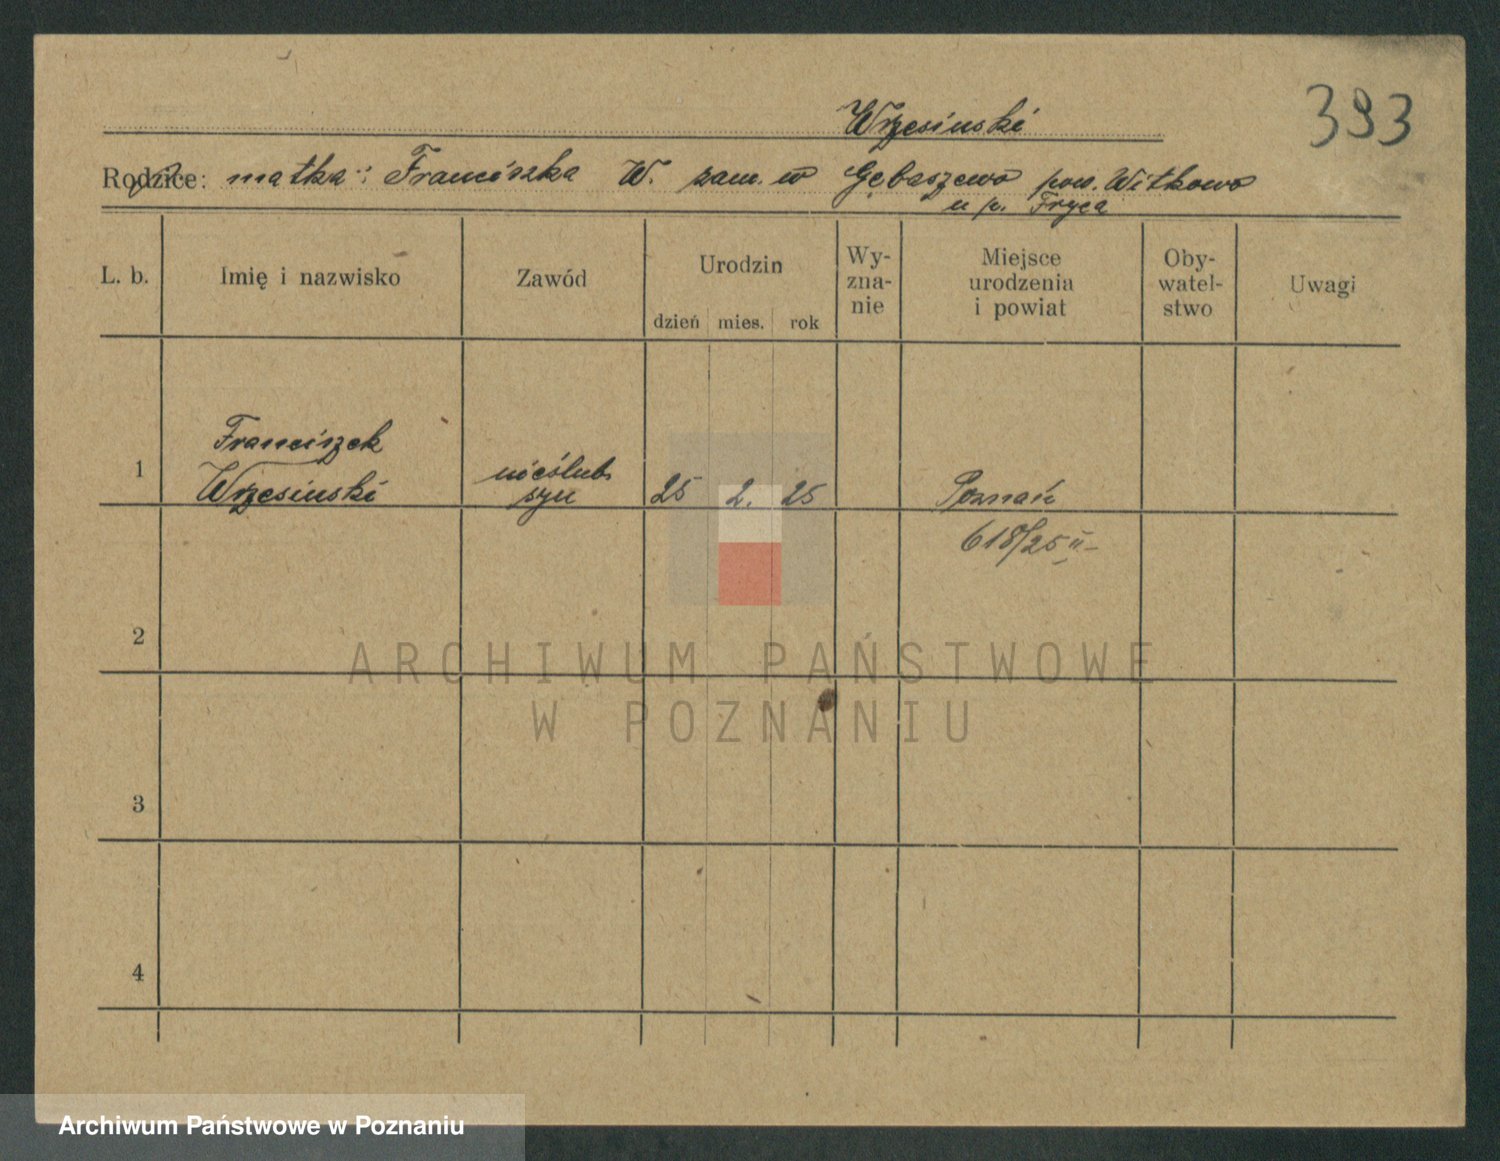 393
Wrzesinski
Rodzice: matka: Franciszka W. zam. w Gębaszewo pow. Witkowo
u p. Fryca
L. b. Imię i nazwisko Zawód Urodzin dzień mies. rok Wy-
zna-
nie Miejsce
urodzenia
i powiat Oby-
watel-
stwo Uwagi
1 Franciszek
Wrzesinski nieślub.
syn 25 2. 25 Poznań
618/25 II
2
3
4
ARCHIWUM PAŃSTWOWE
W POZNANIU
Archiwum Państwowe w Poznaniu